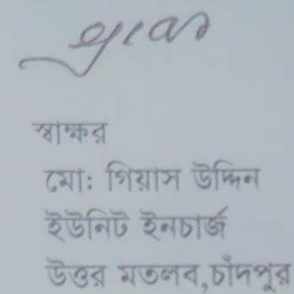 স্বাক্ষর
মো: গিয়াস উদ্দিন
ইউনিট ইনচার্জ
উত্তর মতলব,চাঁদপুর